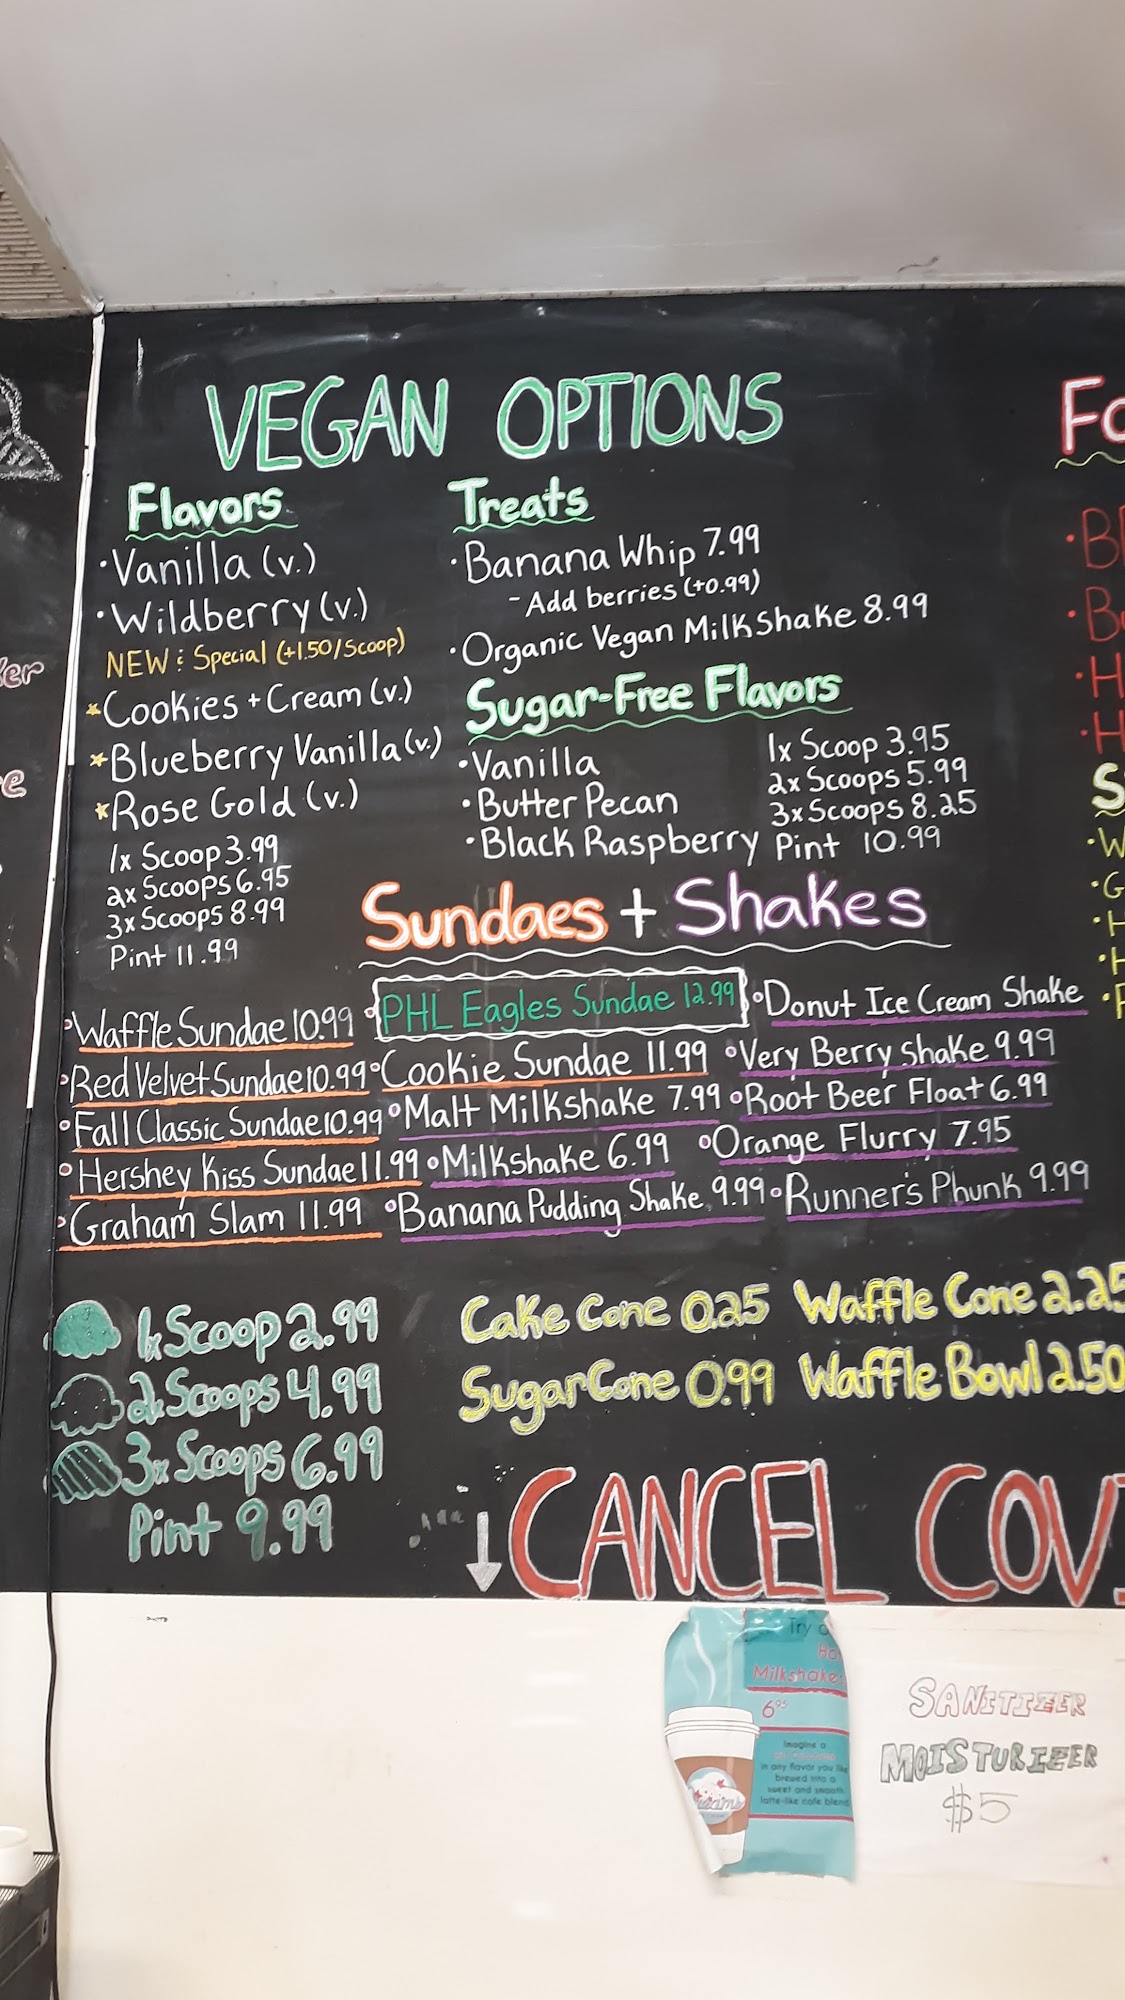 VEGAN OPTIONS
Flavors
·Vanilla (v.)
·Wildberry (v.)
NEW : Special (+1.50/Scoop)
Cookies + Cream (v.)
Blueberry Vanilla (v.)
Rose Gold (v.)
1x Scoop 3.99
2x Scoops 6.95
3x Scoops 8.99
Pint 11.99
Treats
·Banana Whip 7.99
- Add berries (+0.99)
·Organic Vegan Milkshake 8.99
Sugar-Free Flavors
·Vanilla
·Butter Pecan
·Black Raspberry
1x Scoop 3.95
2x Scoops 5.99
3x Scoops 8.25
Pint 10.99
Sundaes + Shakes
Waffle Sundae 10.99
Red Velvet Sundae 10.99
Fall Classic Sundae 10.99
Hershey Kiss Sundae 11.99
Graham Slam 11.99
PHL Eagles Sundae 12.99
Cookie Sundae 11.99
Malt Milkshake 7.99
Milkshake 6.99
Banana Pudding Shake 9.99
Donut Ice Cream Shake
Very Berry Shake 9.99
Root Beer Float 6.99
Orange Flurry 7.95
Runner's Phunk 9.99
1x Scoop 2.99
2x Scoops 4.99
3x Scoops 6.99
Pint 9.99
Cake Cone 0.25
Waffle Cone 2.25
Sugar Cone 0.99
Waffle Bowl 2.50
CANCEL COVI
Try a
Milkshake
6⁹⁵
Imagine a
in any flavor you like
brewed into a
sweet and smooth
latte-like cafe blend
SANITIZER
MOISTURIZER
$5